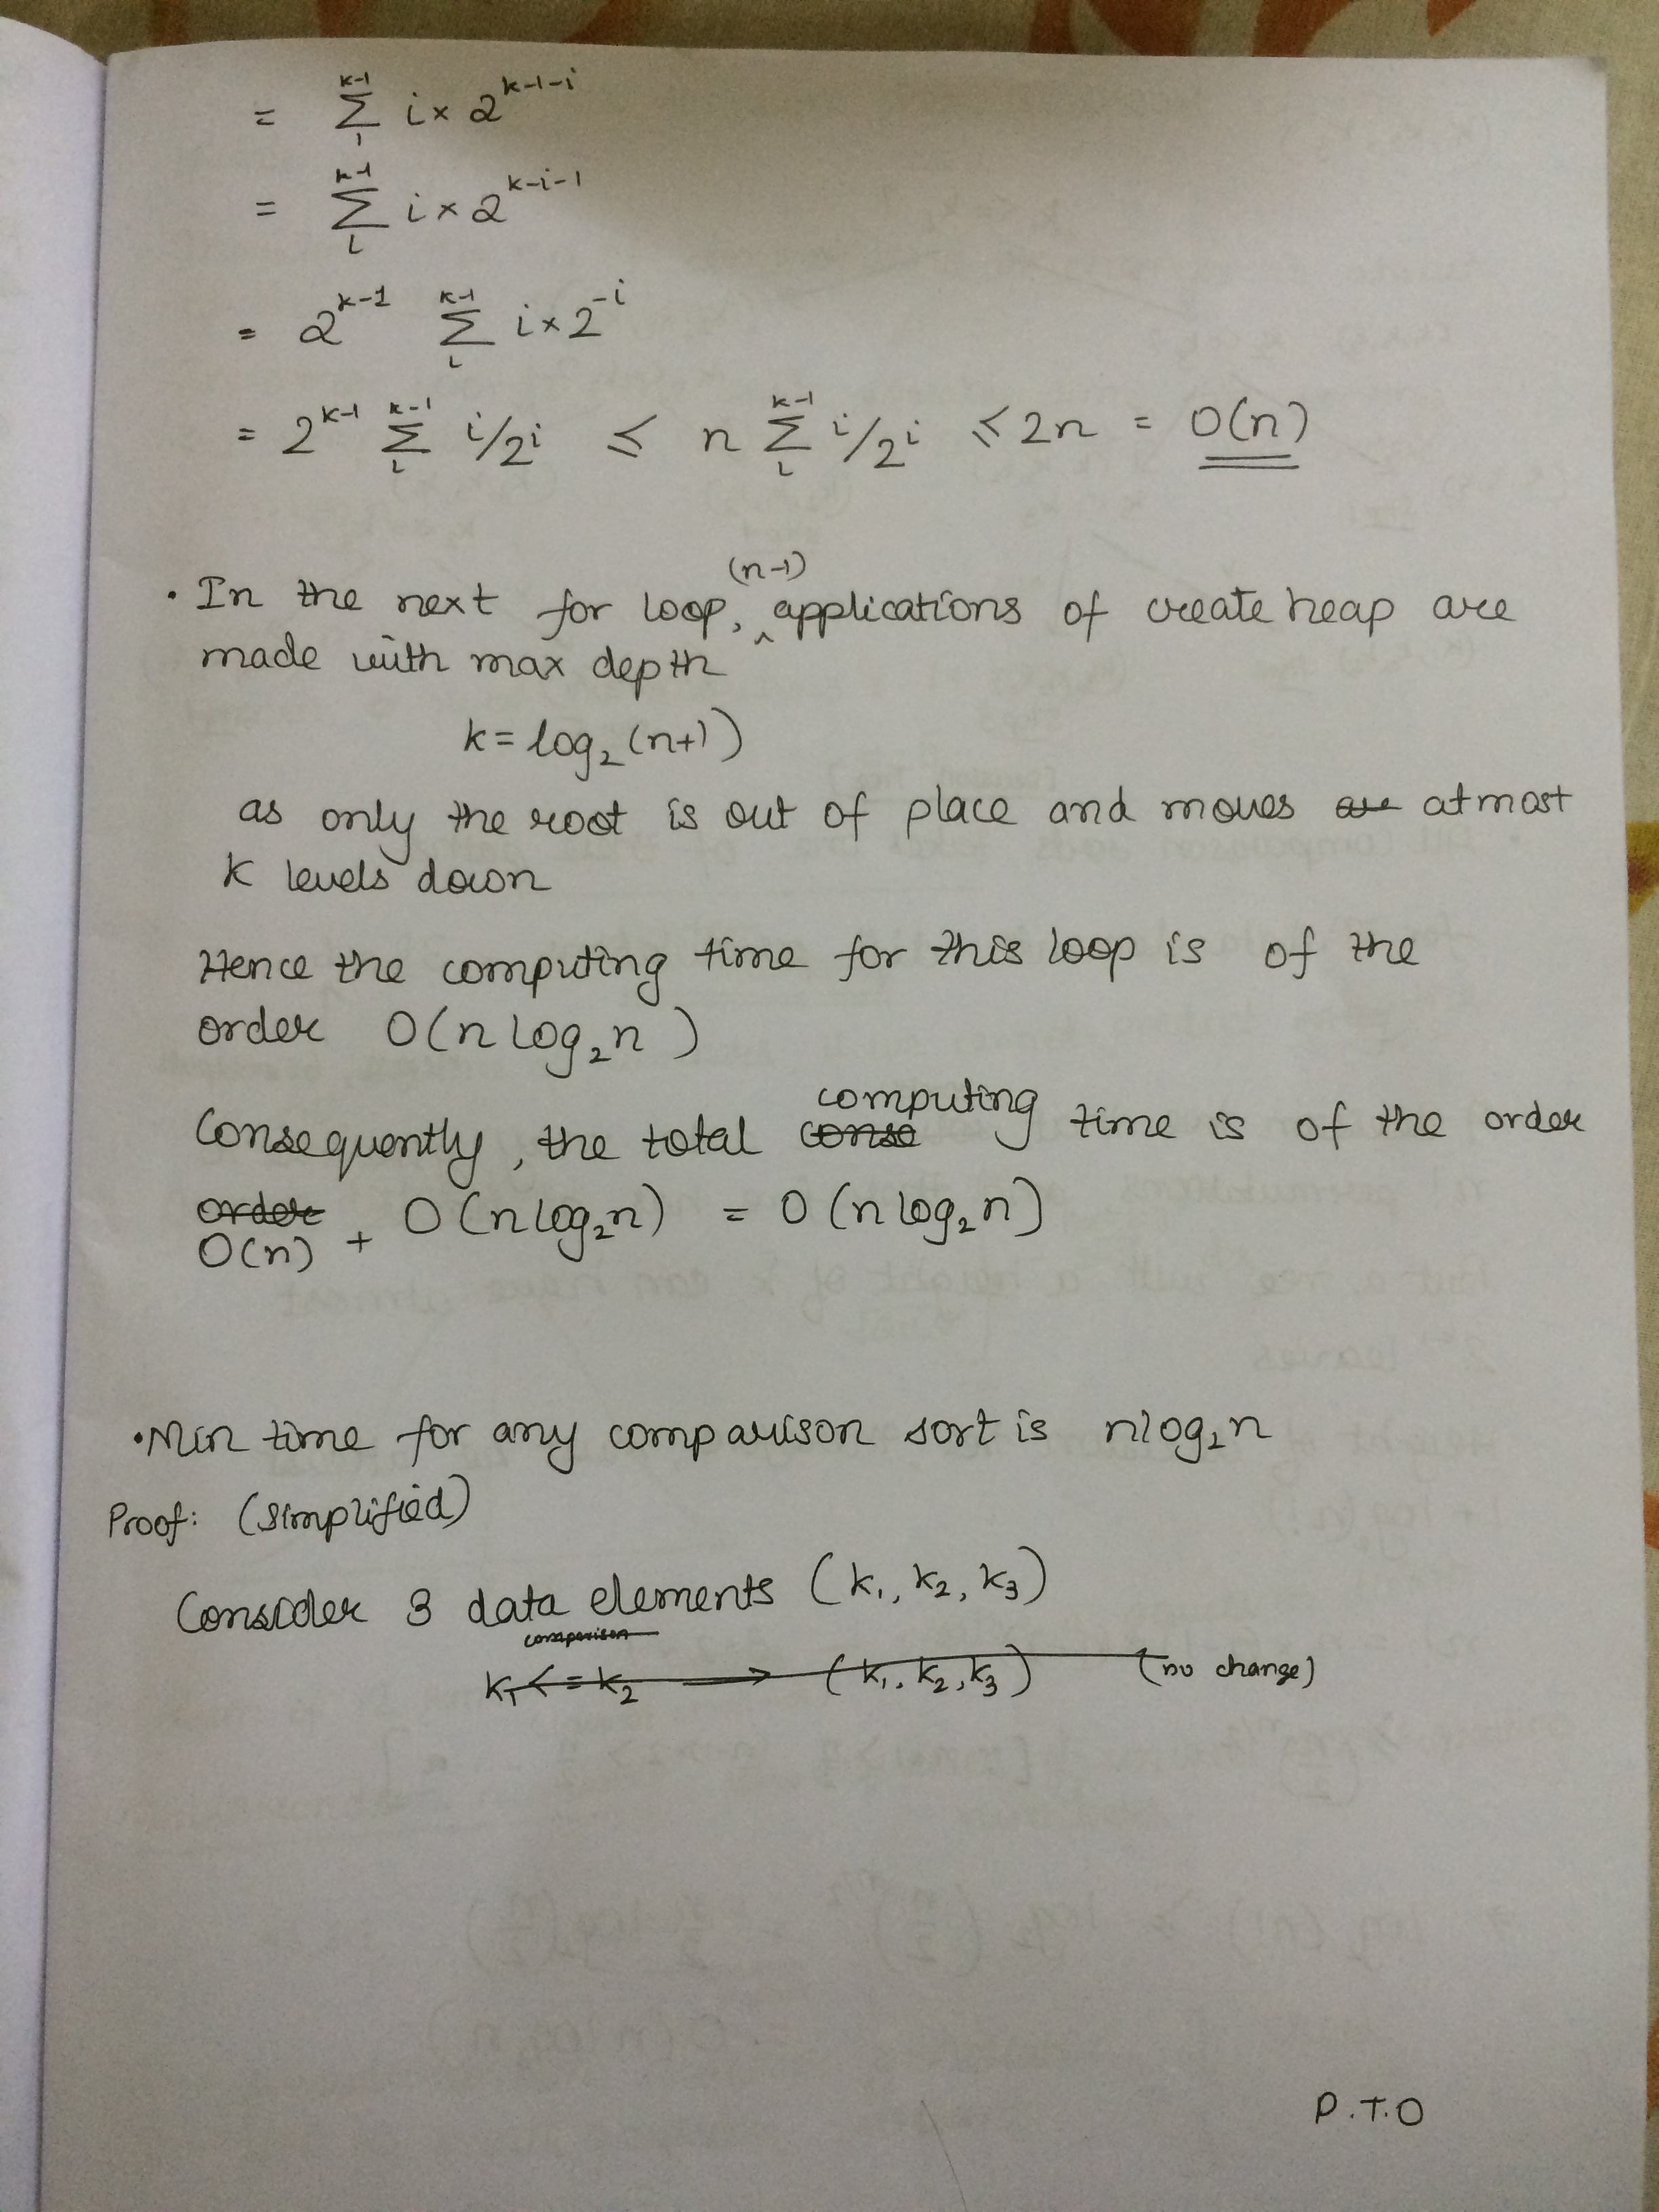 = Σ_{1}^{k-1} i × 2^{k-1-i}
= Σ_{1}^{k-1} i × 2^{k-i-1}
= 2^{k-1} Σ_{1}^{k-1} i × 2^{-i}
= 2^{k-1} Σ_{1}^{k-1} i/2i ≤ n Σ_{1}^{k-1} i/2i ≤ 2n = O(n)
• In the next for loop, (n-1) applications of create heap are
made with max depth
k = log₂ (n+1)
as only the root is out of place and moves are atmost
k levels down
Hence the computing time for this loop is of the
order O(n log₂n)
Consequently, the total conse computing time is of the order
order
O(n) + O(nlog₂n) = O(nlog₂n)
• Min time for any comparison sort is nlog₂n
Proof: (simplified)
Consider 3 data elements (k₁, k₂, k₃)
comparison
k₁ <= k₂ → (k₁, k₂, k₃) (no change)
P.T.O